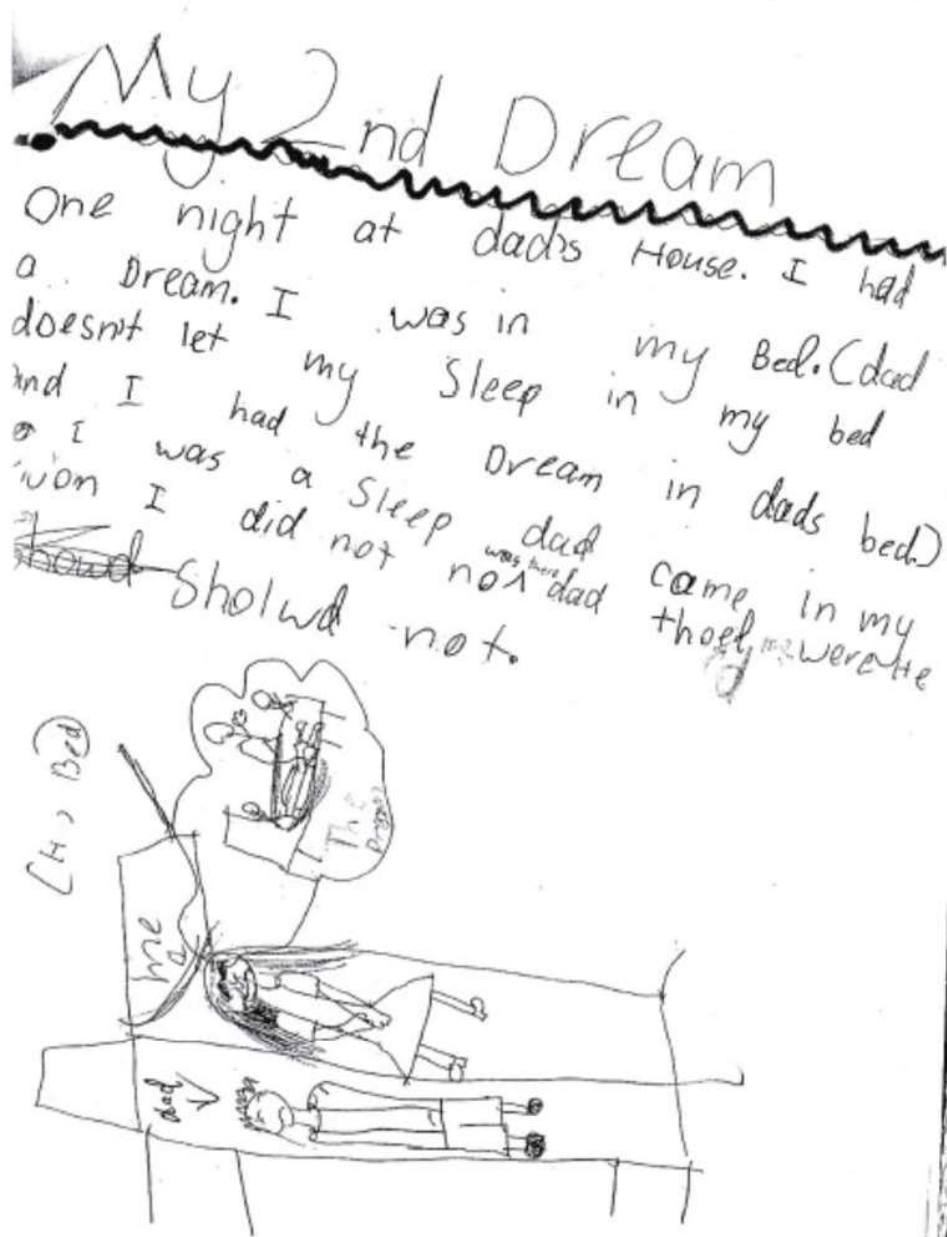 My 2nd Dream
One night at dad's House. I had
a Dream. I was in my Bed. (dad
doesn't let my Sleep in my bed
and I had the Dream in dads bed.)
I was a Sleep dad came in my
I did not no was there dad were He
Sholwd not.
Bed
The
me
dad